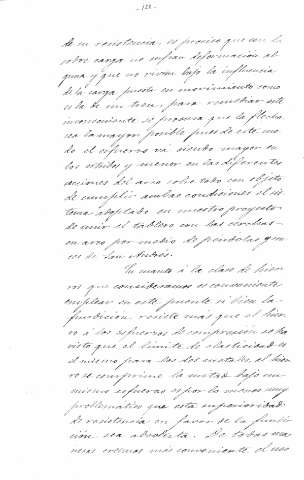 - 128 -
de su resistencia, es preciso que con la
sobre carga no sufran deformación al
guna y que no vivren bajo la influencia
de la carga puesta en movimiento como
es la de un tren; para remediar este
inconveniente se procura que la flecha
sea la mayor posible pues de este mo
do el esfuerzo va siendo mayor en
los estribos y menor en las diferentes
secciones del arco sobre todo con objeto
de cumplir ambas condiciones el sis
tema adoptado en nuestro proyecto
de unir el tablero con las cerchas
en arco por medio de péndolas y cru
ces de San Andrés.
En cuanto á la clase de hier
ros que consideramos es conveniente
emplear en este puente si bien la
fundición resiste más que el hier
ro á los esfuerzos de compresión se ha
visto que el límite de elasticidad es
el mismo para los dos metales, el hier
ro se comprime la mitad bajo un
mismo esfuerzo es por lo menos muy
problemático que esta superioridad
de resistencia en favor de la fundi
ción sea absoluta. De todas ma
neras creemos más conveniente el uso